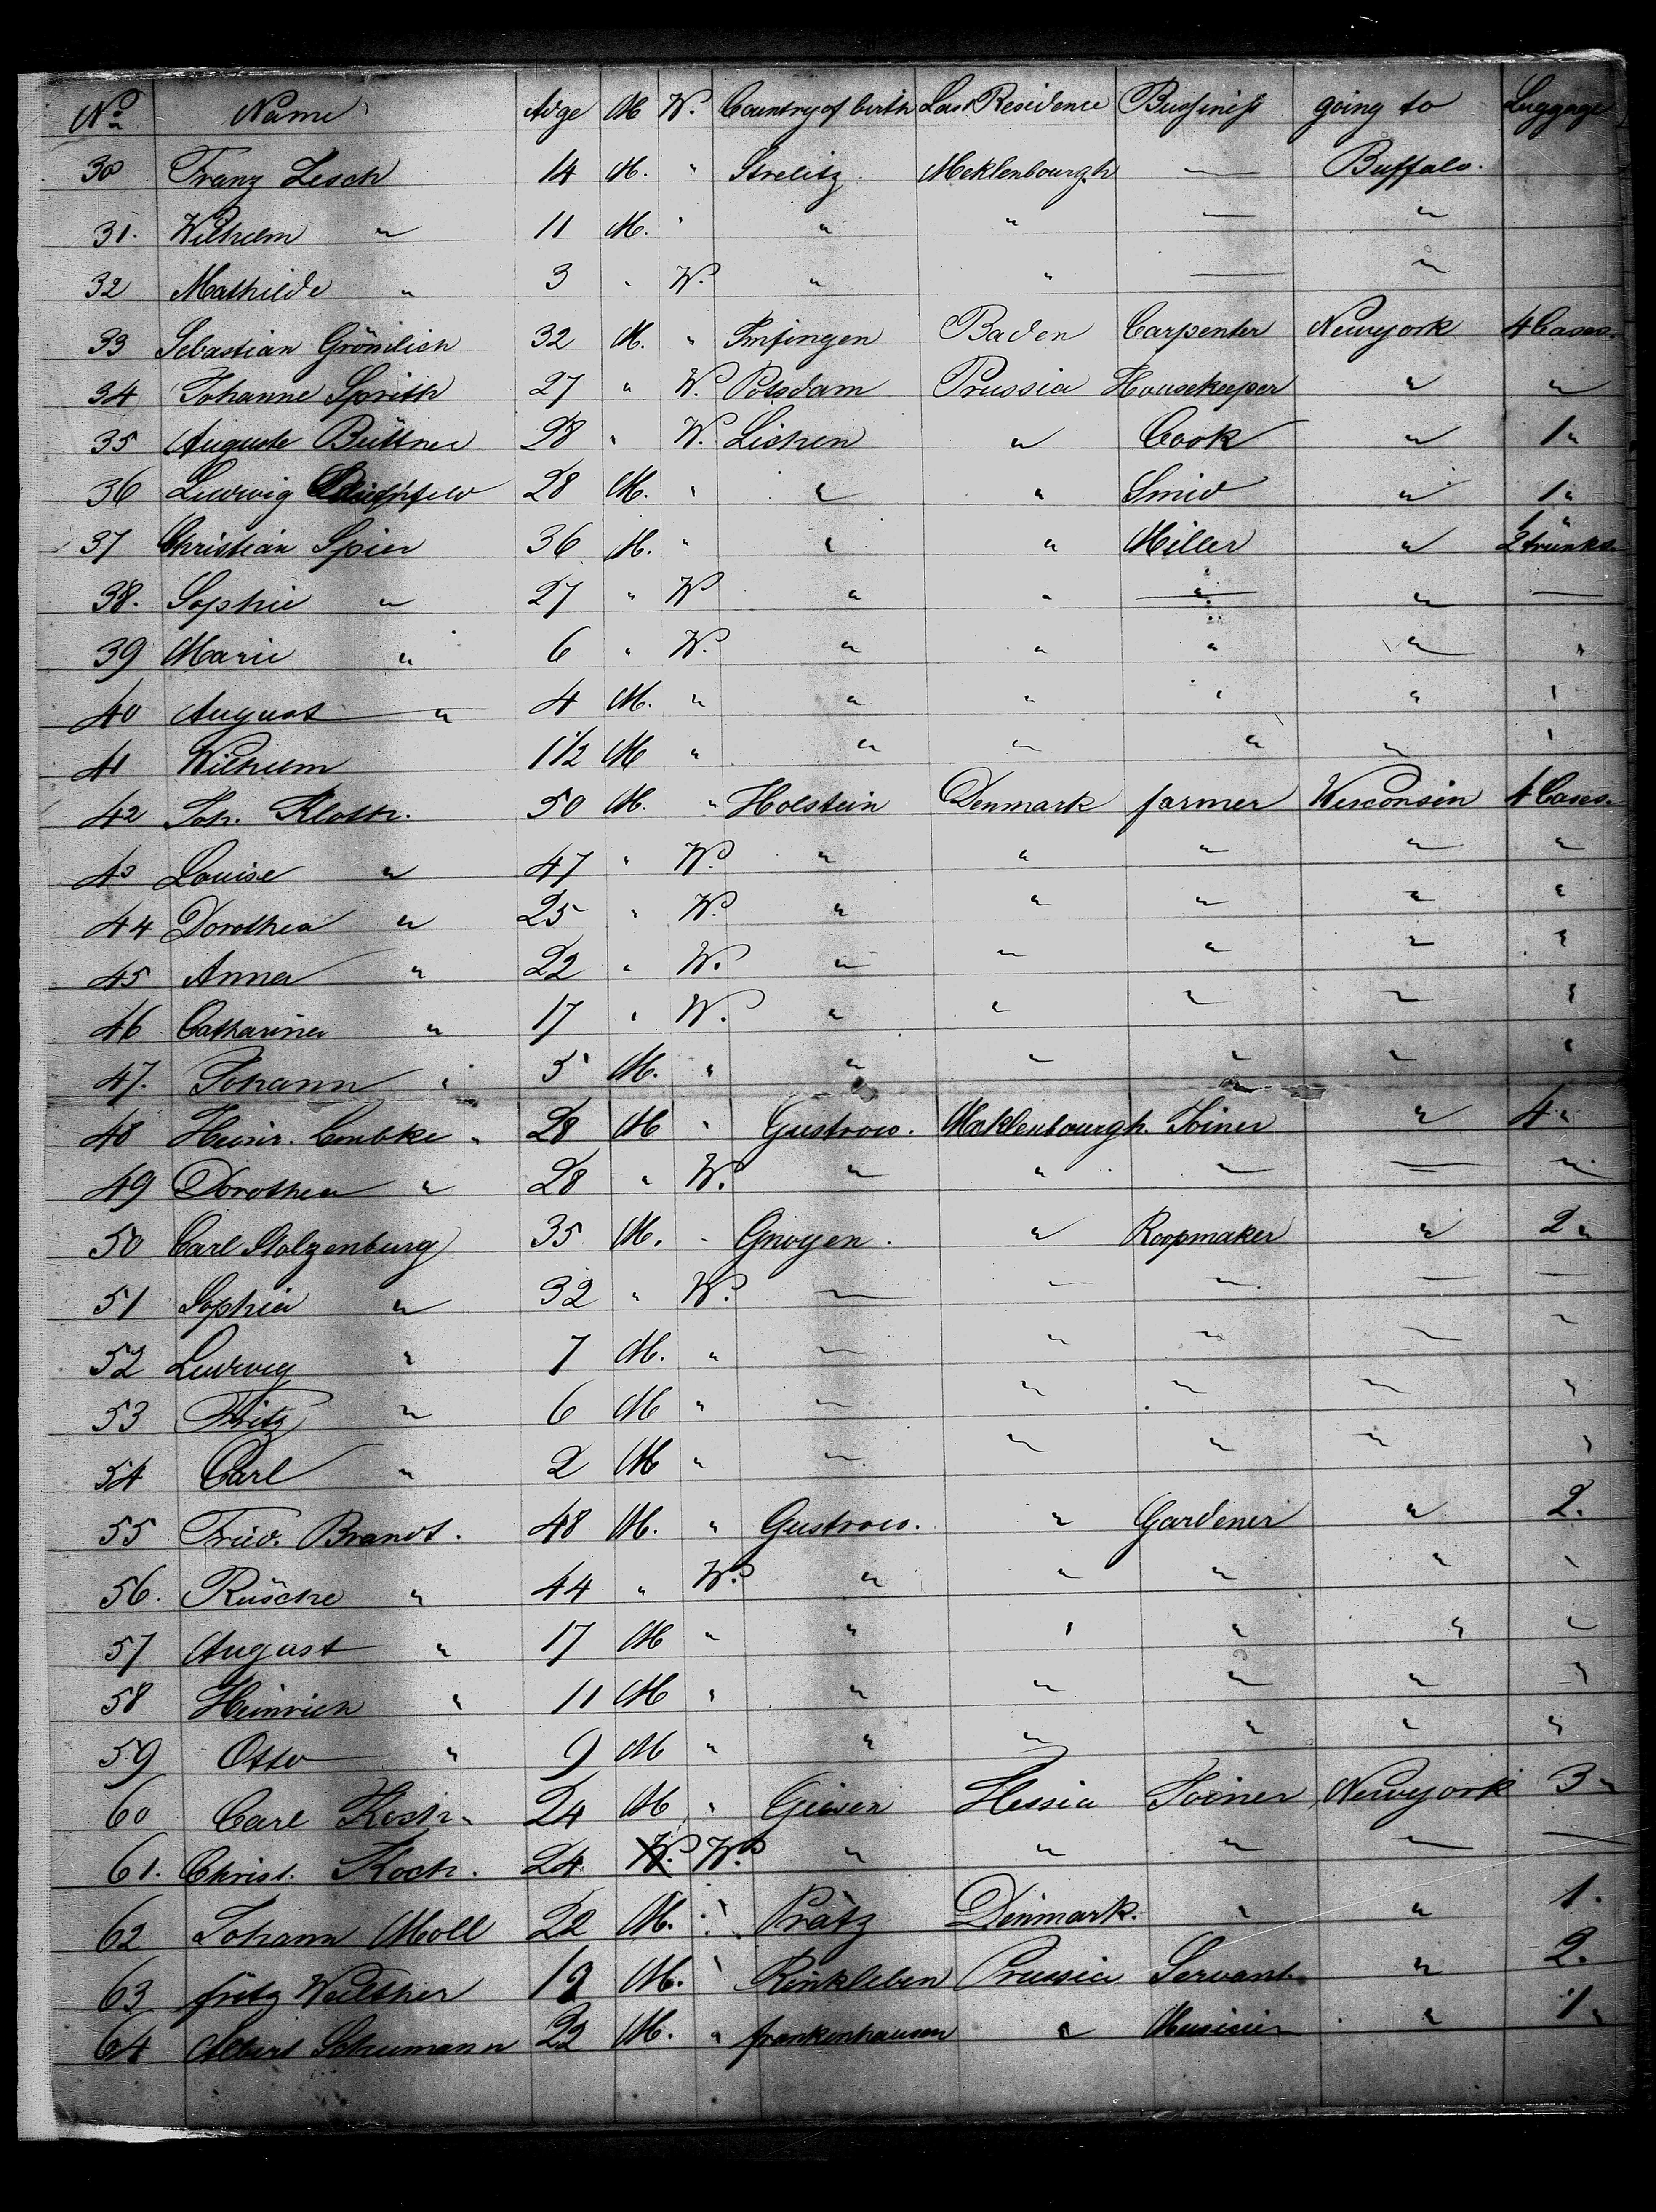 No Name Aige M W. Country of birth Last Residence Bussiness going to Luggage
30 Franz Lesch 14 M. " Strelitz Meklenbourgh — Buffalo.
31. Wilhelm " 11 M. " " " — "
32 Mathilde " 3 " W. " " — "
33 Sebastian Grömlich 32 M. " Imfingen Baden Carpenter Newyork 4 Cases.
34 Johanne Sprith 27 " W. Potsdam Prussia Housekeeper " "
35 Auguste Büttner 28 " W. Lichen " Cook " 1 "
36 Ludwig 28 M. " " " Smid " 1 "
37 Christian Spier 36 M. " " " Miller " 1 " 2 trunks.
38. Sophie " 27 " W " " " " —
39 Marie " 6 " W. " " " " "
40 August " 4 M. " " " " " "
41 Wilhelm 1 1/2 M " " " " " "
42 Joh. Kloth. 50 M. " Holstein Denmark farmer Wisconsin 4 Cases.
43 Louise " 47 " W. " " " " "
44 Dorothea " 25 " W. " " " " "
45 Anna " 22 " W. " " " " "
46 Catharina " 17 " W. " " " " "
47. Johann " 5 M. " " " " " "
48 Heinr. Lembke " 28 M " Gustrow. Meklenbourgh. Joiner " 4 "
49 Dorothea " 28 " W. " " " — "
50 Carl Stolzenburg 35 M. " Gnoyen. " Roopmaker " 2 "
51 Sophia " 32 " W. " " " — —
52 Ludwig " 7 M. " " " " " "
53 Fritz " 6 M " " " " " "
54 Carl " 2 M " " " " " "
55 Fried. Brandt. 48 M. " Gustrow. " Gardener " 2.
56. Rüsche " 44 " W. " " " " "
57 August " 17 M " " " " " "
58 Heinrich " 11 M " " " " " "
59 Otto " 9 M " " " " " "
60 Carl Koch " 24 M " Giesen Hessia Joiner Newyork 3 "
61. Christ. Koch. 24 W. W. " " " " —
62 Johann Moll 22 M. " Prätz Denmark. " " 1.
63 fritz Walther 19 M. " Rinkleben Prussia Servant " 2.
64 Albert Schumann 22 M. " frankenhausen " Musicien " 1 "